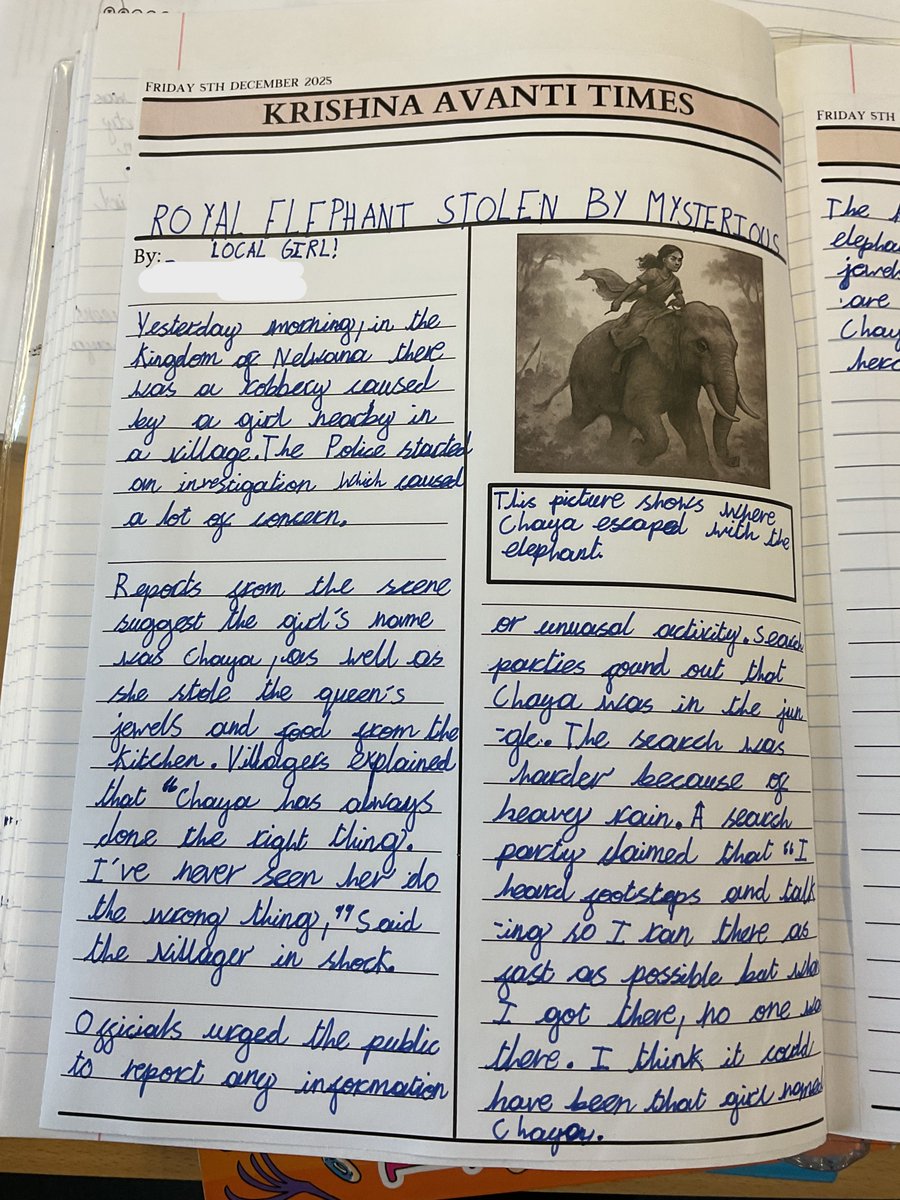 FRIDAY 5TH DECEMBER 2025
KRISHNA AVANTI TIMES
ROYAL ELEPHANT STOLEN BY MYSTERIOUS
LOCAL GIRL!
By:
Yesterday morning, in the
Kingdom of Nelwana there
was a robbery caused
by a girl nearby in
a village. The Police started
an investigation which caused
a lot of concern.
Reports from the scene
suggest the girl's name
was Chaya, as well as
she stole the queen's
jewels and food from the
kitchen. Villagers explained
that "Chaya has always
done the right thing.
I've never seen her do
the wrong thing," said
the villager in shock.
Officials urged the public
to report any information
This picture shows where
Chaya escaped with the
elephant.
or unuasal activity. Search
parties found out that
Chaya was in the jun
-gle. The search was
harder because of
heavy rain. A search
party claimed that "I
heard footsteps and talk
-ing so I ran there as
fast as possible but
I got there, no one
there. I think it could
have been that girl named
Chaya.
FRIDAY 5TH
The
jewels
are